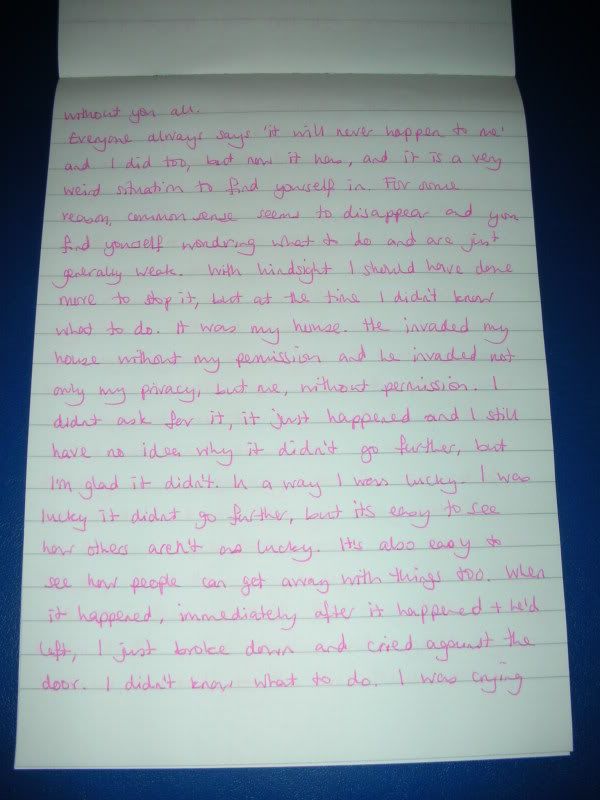 without you all.
Everyone always says 'it will never happen to me'
and I did too, but now it has, and it is a very
weird situation to find yourself in. For some
reason, common sense seems to disappear and you
find yourself wondring what to do and are just
generally weak. With hindsight I should have done
more to stop it, but at the time I didn't know
what to do. It was my house. He invaded my
house without my permission and he invaded not
only my privacy, but me, without permission. I
didnt ask for it, it just happened and I still
have no idea why it didn't go further, but
I'm glad it didn't. In a way I was lucky. I was
lucky it didnt go further, but its easy to see
how others aren't as lucky. It's also easy to
see how people can get away with things too. When
it happened, immediately after it happened + he'd
left, I just broke down and cried against the
door. I didn't know what to do. I was crying